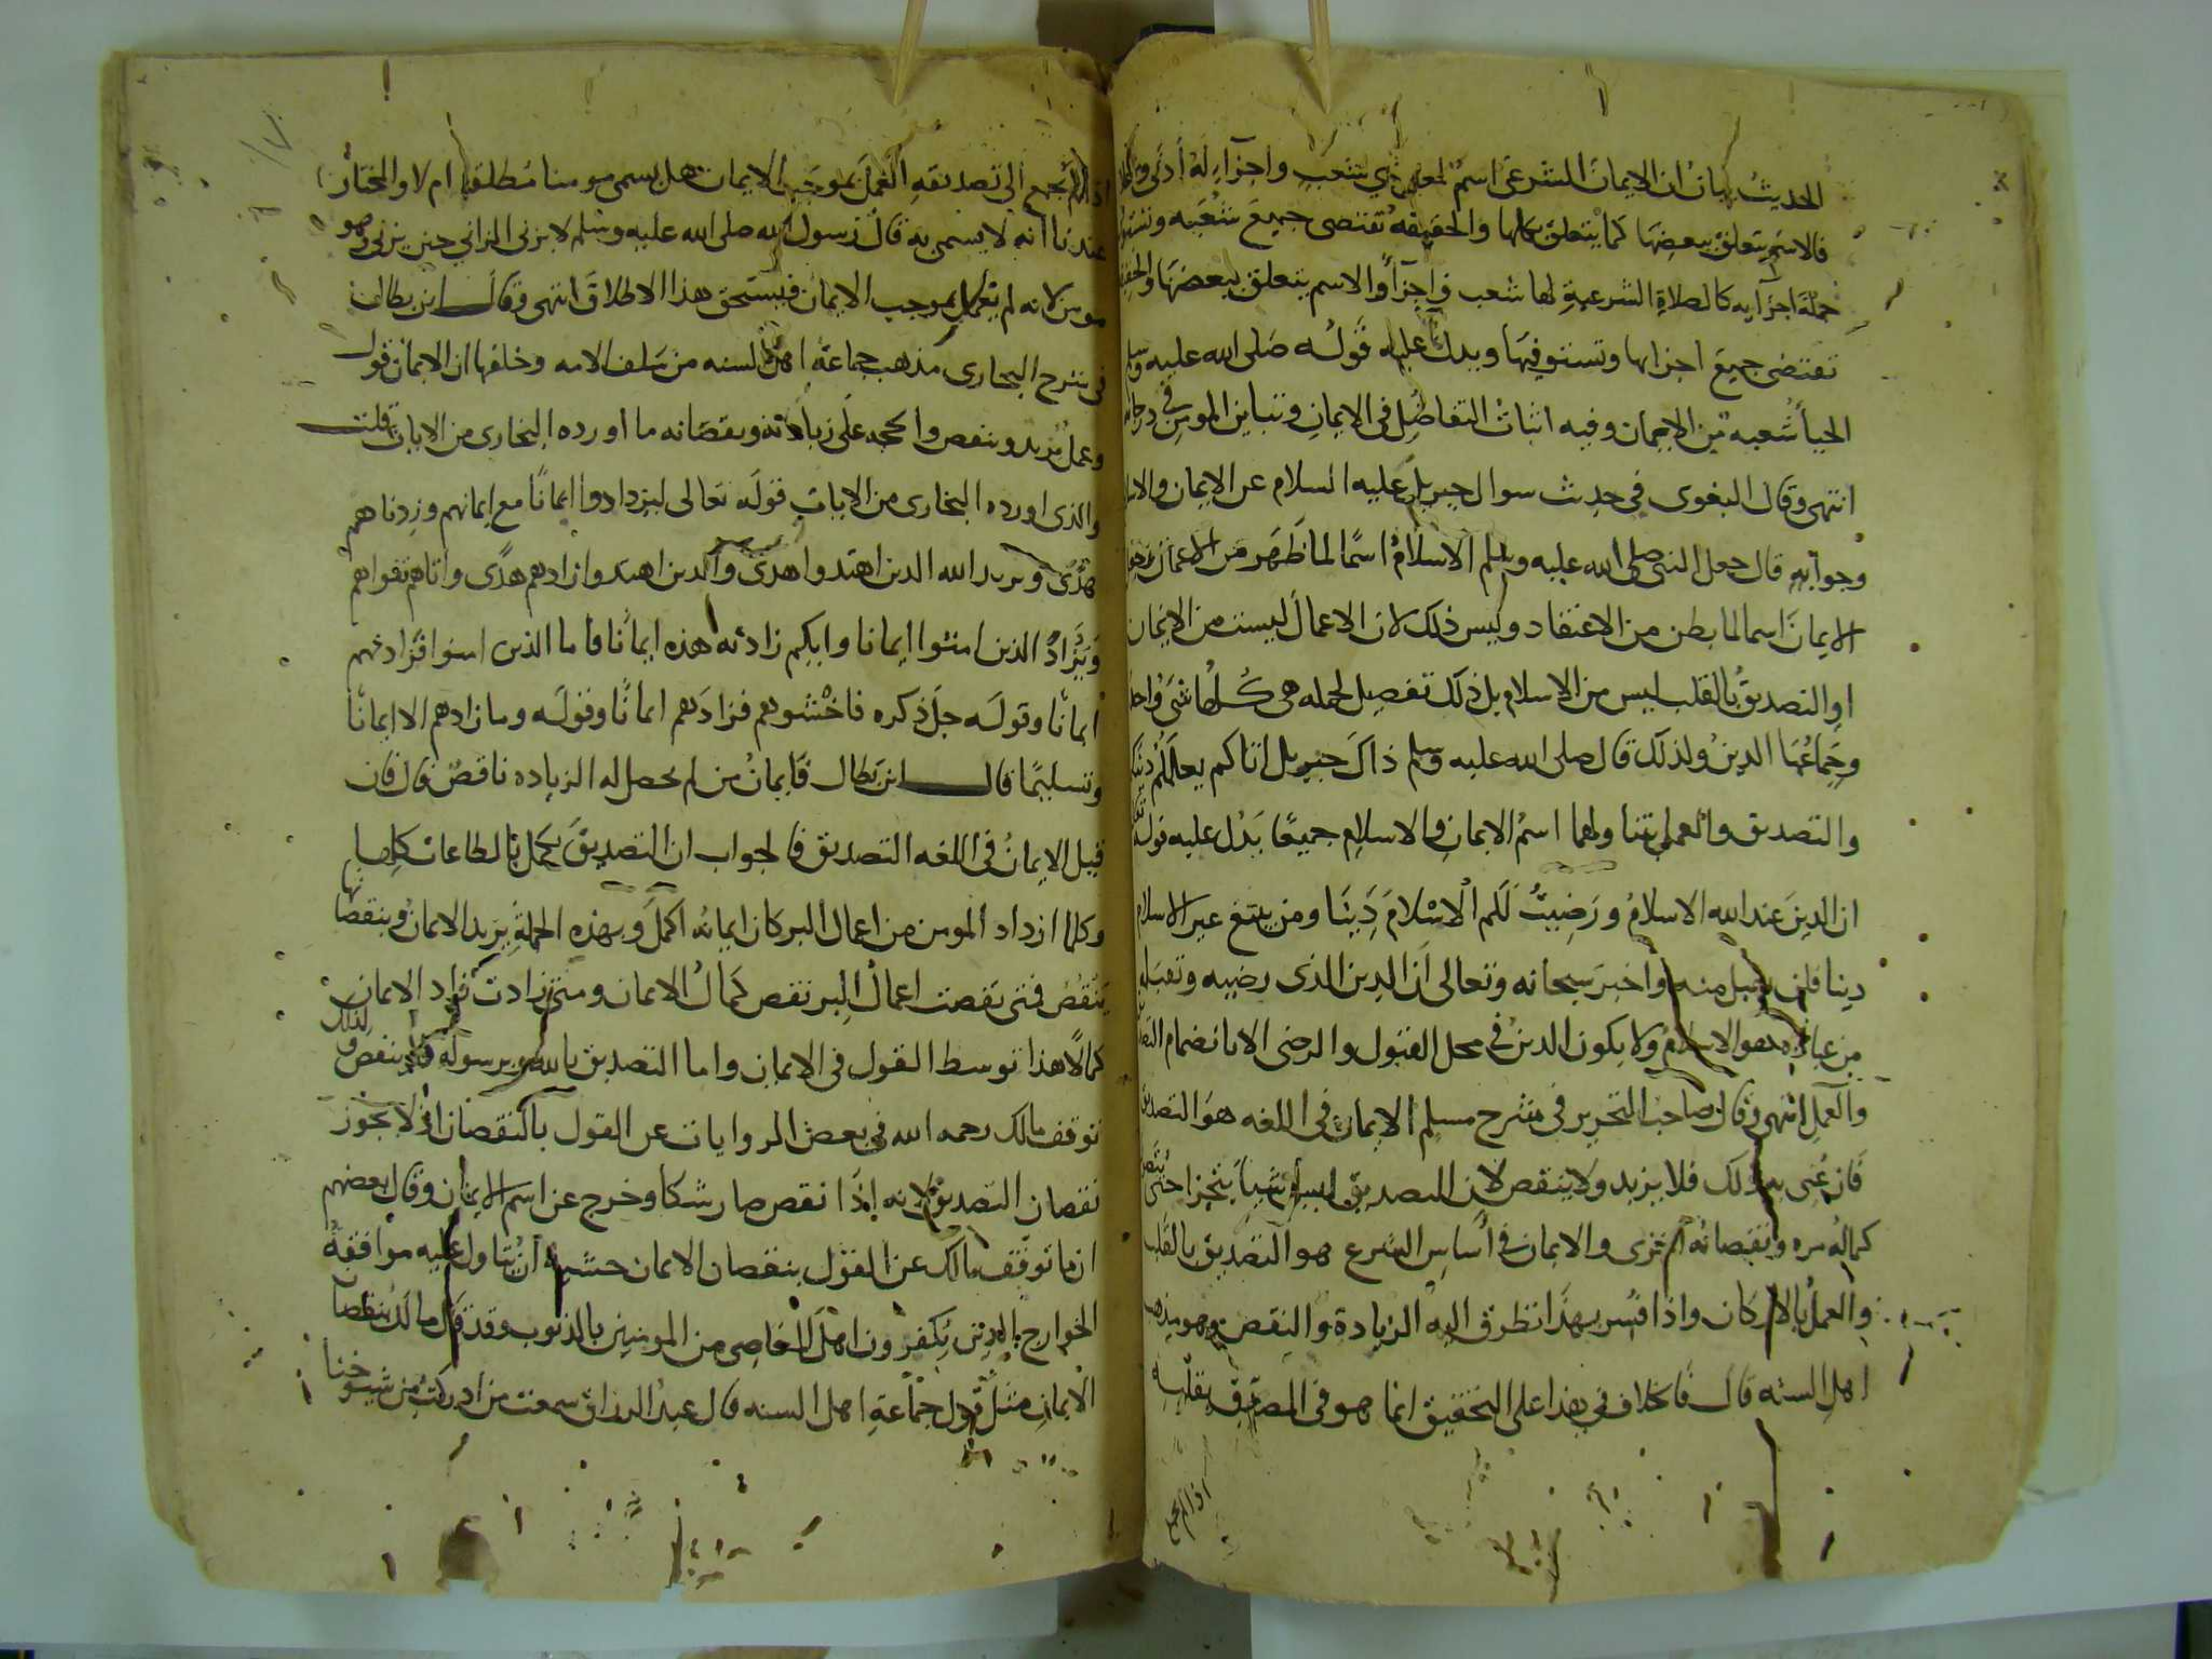 الحديث بيان ان الايمان الشرعي اسم لمعنى ذي شعب واجزاء له أدنى واعلا
فالاسم يتعلق ببعضها كما يتعلق بكلها والحقيقه تقتضى جميع شعبه وتستوفي
جملة اجزايه كالصلاة الشرعية لها شعب واجزآ والاسم يتعلق ببعضها والحقيقة
تقتضى جميع اجزايها وتستوفيها ويدل عليه قوله صلى الله عليه وسلم
الحيا شعبة من الايمان وفيه اثبات التفاضل فى الايمان وتباين المومنين في درجاته
انتهى وقال البغوى فى حديث سوال جبريل عليه السلام عن الايمان والاسلام
وجوابه قال جعل النبى صلى الله عليه وسلم الاسلام اسما لما ظهر من الاعمال وجعل
الايمان اسما لما بطن من الاعتقاد وليس ذلك لان الاعمال ليست من الايمان
او التصديق بالقلب ليس من الاسلام بل ذلك تفصيل لجمله هى كلها شى واحد
وجماعها الدين ولذلك قال صلى الله عليه وسلم ذاك جبريل اتاكم يعلمكم دينكم
والتصديق والعمل يتناولهما اسم الايمان والاسلام جميعا يدل عليه قوله تعالى
ان الدين عند الله الاسلام ورضيت لكم الاسلام دينا ومن يبتغ غير الاسلام
دينا فلن يقبل منه واخبر سبحانه وتعالى ان الدين الذى رضيه وتقبله
من عباده هو الاسلام ولا يكون الدين في محل القبول والرضى الا بانضمام التصديق
والعمل انتهى وقال صاحب التحرير فى شرح مسلم الايمان فى اللغه هو التصديق
فان عنى به ذلك فلا يزيد ولا ينقص لان التصديق ليس شيا يتجزا حتى يتصور
كماله مره ونقصانه اخرى والايمان في لسان الشرع هو التصديق بالقلب
والعمل بالاركان واذا فسر بهذا تطرق اليه الزيادة والنقص وهو مذهب
اهل السنه قال فالخلاف فى هذا على التحقيق انما هو فى المصدق بقلبه
اذا لم يجمع
اذا لم يجمع الى تصديقه العمل بموجب الايمان هل يسمى مومنا مطلقا ام لا والمختار
عندنا انه لا يسمى به قال رسول الله صلى الله عليه وسلم لا يزنى الزاني حين يزنى وهو
مومن لانه لم يعمل بموجب الايمان فيستحق هذا الاطلاق انتهى وقال ابن بطال
فى شرح البخارى مذهب جماعة اهل السنه من سلف الامه وخلفها ان الايمان قول
وعمل يزيد وينقص والحجه على زيادته ونقصانه ما اورده البخارى من الايات قلت
والذى اورده البخارى من الايات قوله تعالى ليزدادوا ايمانا مع ايمانهم وزدناهم
هدى ويريد الله الذين اهتدوا هدى والذين اهتدوا زادهم هدى واتاهم تقواهم
ويزداد الذين امنوا ايمانا وايكم زادته هذه ايمانا فاما الذين امنوا فزادتهم
ايمانا وقوله جل ذكره فاخشوهم فزادهم ايمانا وقوله وما زادهم الا ايمانا
وتسليما قال ابن بطال فايمان من لم تحصل له الزياده ناقص قال فان
قيل الايمان فى اللغه التصديق فالجواب ان التصديق يكمل بالطاعات كلها
وكلما ازداد المومن من اعمال البر كان ايمانه اكمل وبهذه الجملة يزيد الايمان وبنقصانها
ينقص فمتى نقصت اعمال البر نقص كمال الايمان ومتى زادت زاد الايمان
كمالا هذا توسط القول فى الايمان واما التصديق بالله وبرسوله فلا ينقص ولذلك
توقف مالك رحمه الله فى بعض الروايات عن القول بالنقصان اذ لا يجوز
نقصان التصديق لانه اذا نقص صار شكا وخرج عن اسم الايمان وقال بعضهم
انما توقف مالك عن القول بنقصان الايمان خشية ان يتاول عليه موافقة
الخوارج الذين يكفرون اهل المعاصى من المومنين بالذنوب وقد قال مالك بنقصان
الايمان مثل قول جماعة اهل السنه قال عبد الرزاق سمعت من ادركت من شيوخنا